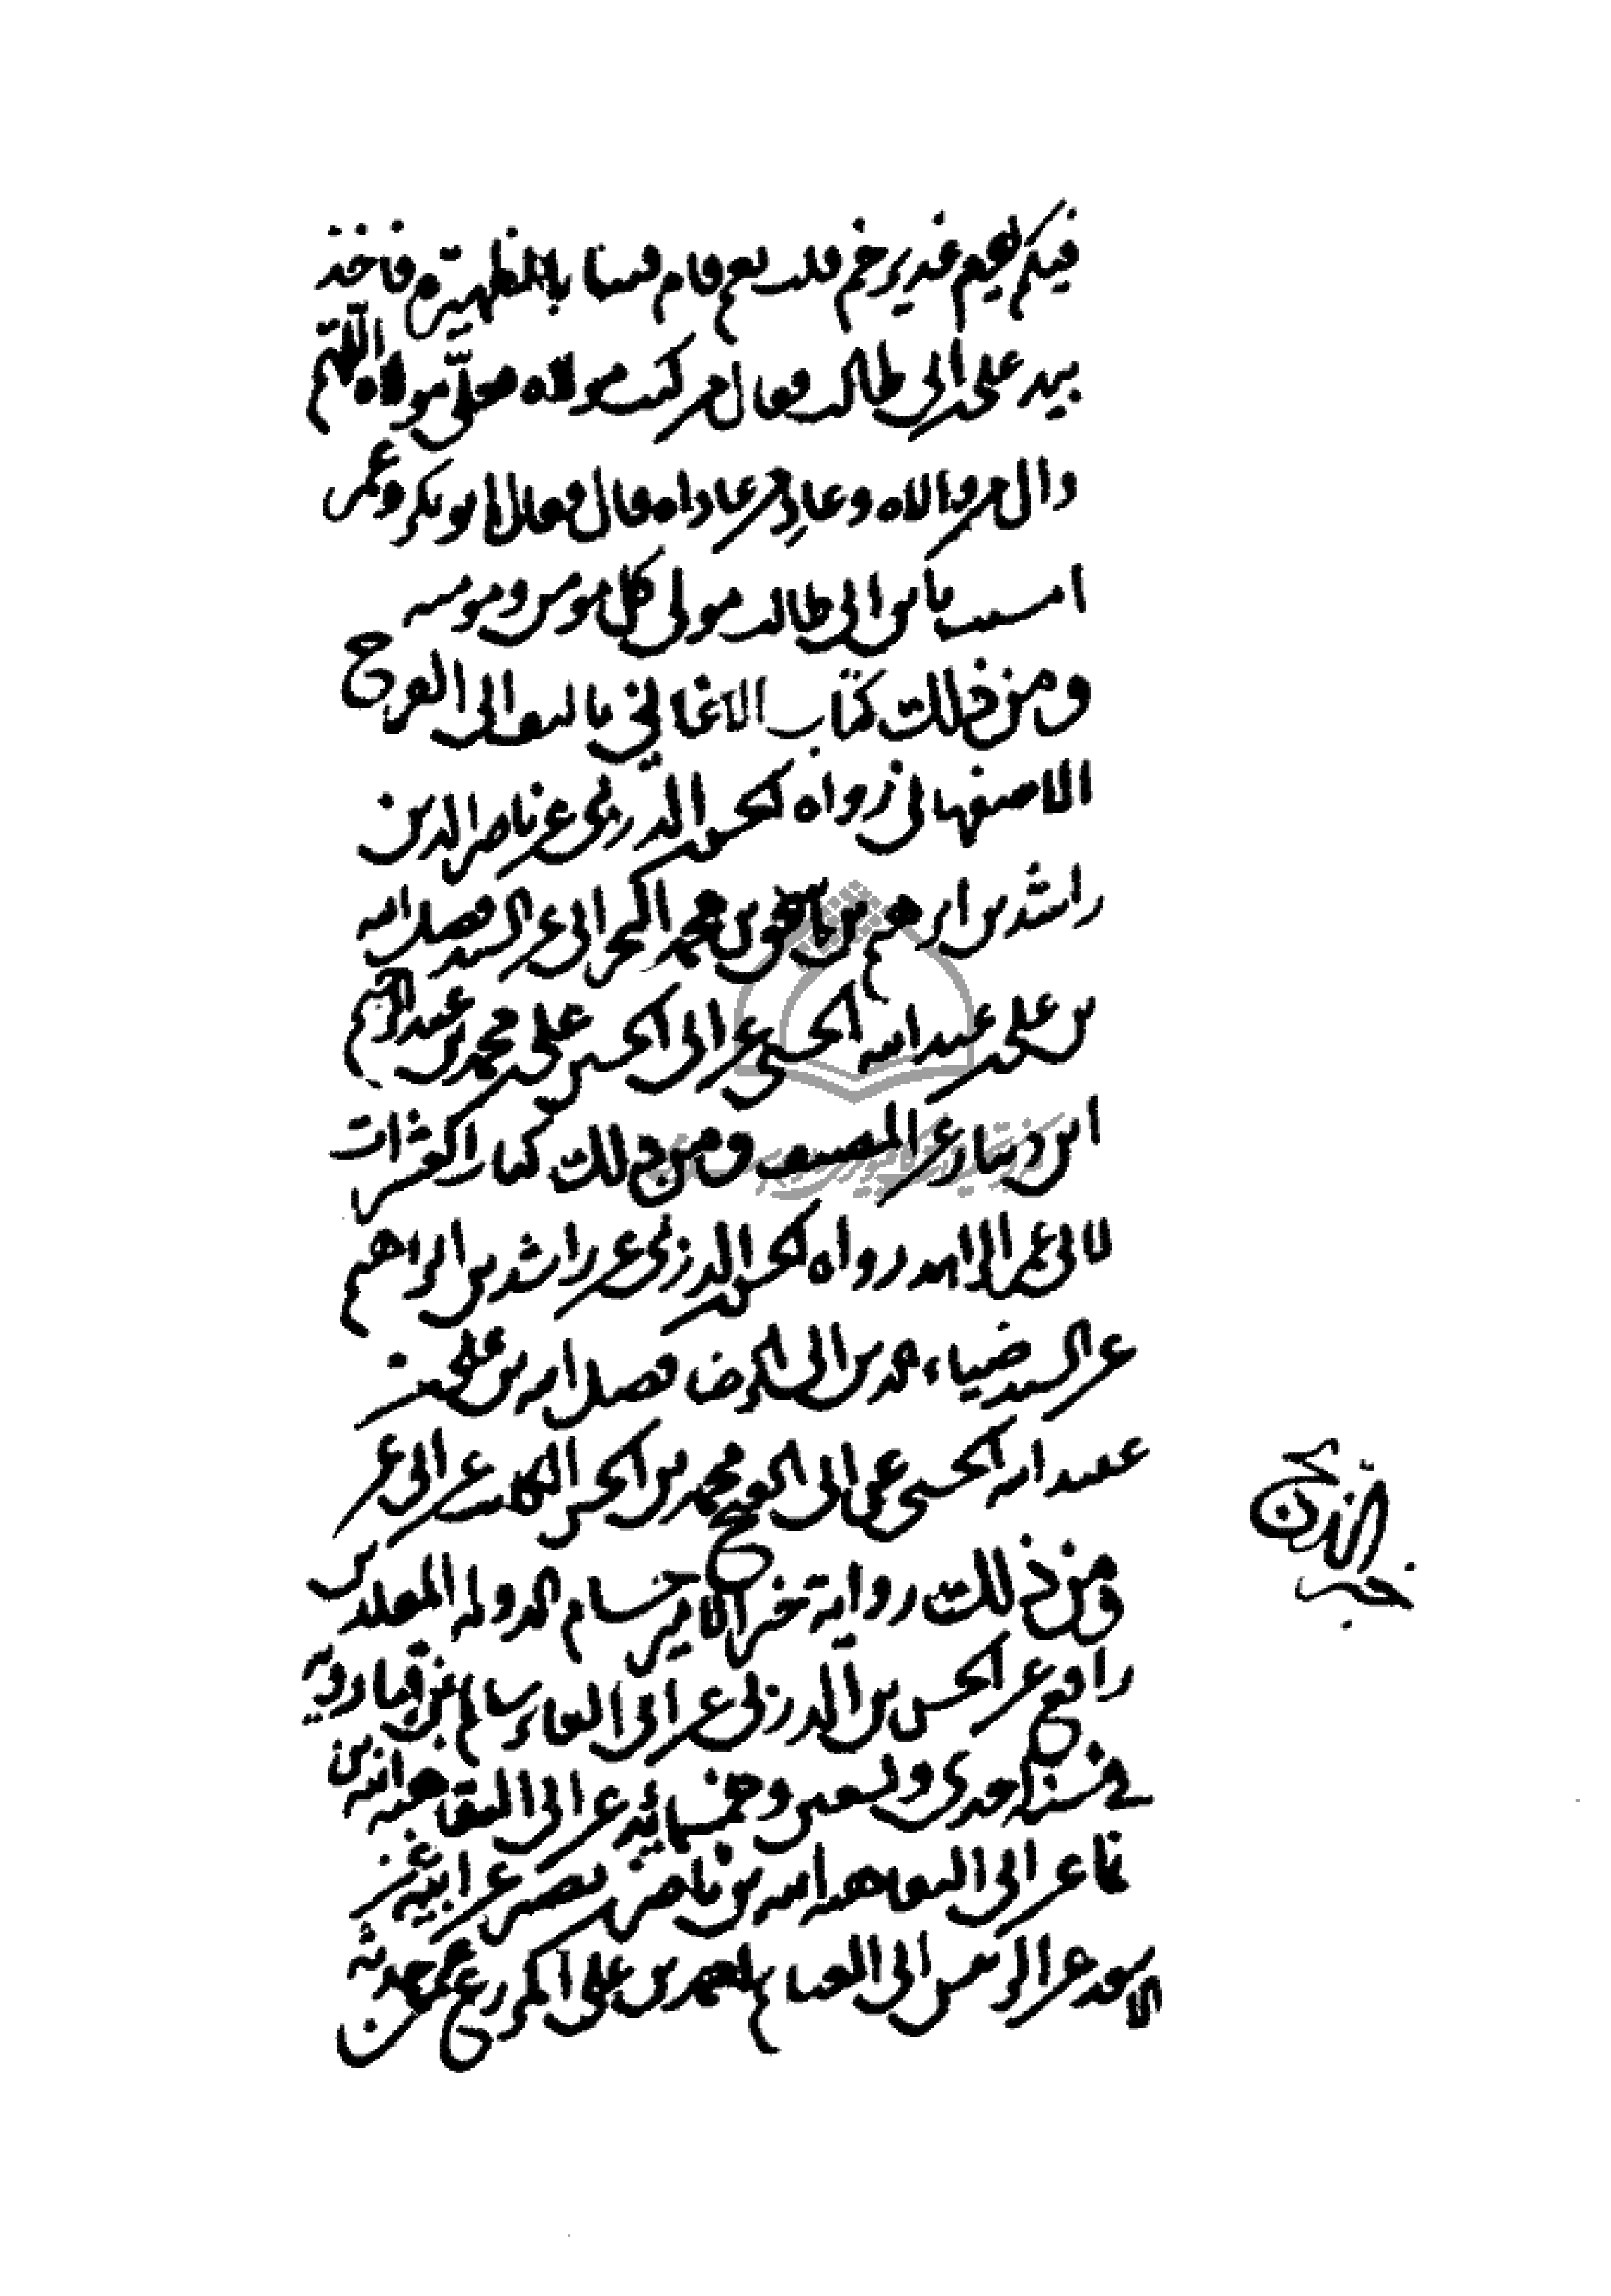 فيكم يوم غدير خم قلت نعم قام فينا بالظهيرة فاخذ
بيد علي بن ابي طالب فقال من كنت مولاه فعلي مولاه اللهم
وال من والاه وعاد من عاداه قال فقال ابو بكر وعمر
امسيت يا بن ابي طالب مولى كل مومن ومومنه
ومن ذلك كتاب الاغاني تاليف ابي الفرج
الاصفهاني رواه الحسن الدربي عن ناصر الدين
راشد بن ابرهيم بن محمد البحراني عن السيد فضل الله
بن علي بن عبد الله الحسني عن ابي الحسين علي بن محمد بن عبد الرحيم
ابن دينار عن المصنف ومن ذلك كتاب
لابي عمر الزاهد رواه الحسن الدربي عن راشد بن ابراهيم
عن السيد ضياء الدين ابي الرضا فضل الله بن علي بن
عبيد الله الحسني عن ابي الفتح محمد بن الحسن الكاتب عن ابي عمر
ومن ذلك رواية خبر الامير حسام الدولة المقلد بن
رافع عن الحسن بن الدربي عن ابي البقاء سالم بن قبارويه
في سنة احدى وتسعين وخمسمائة عن ابي البقا هبة الله بن
نما عن ابي البقا هبة الله بن ناصر بن نصر عن ابيه عن
الاسعد عن الرئيس ابي العباس احمد بن علي عمن حدثه